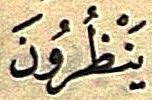 يَنْظُرُونَ